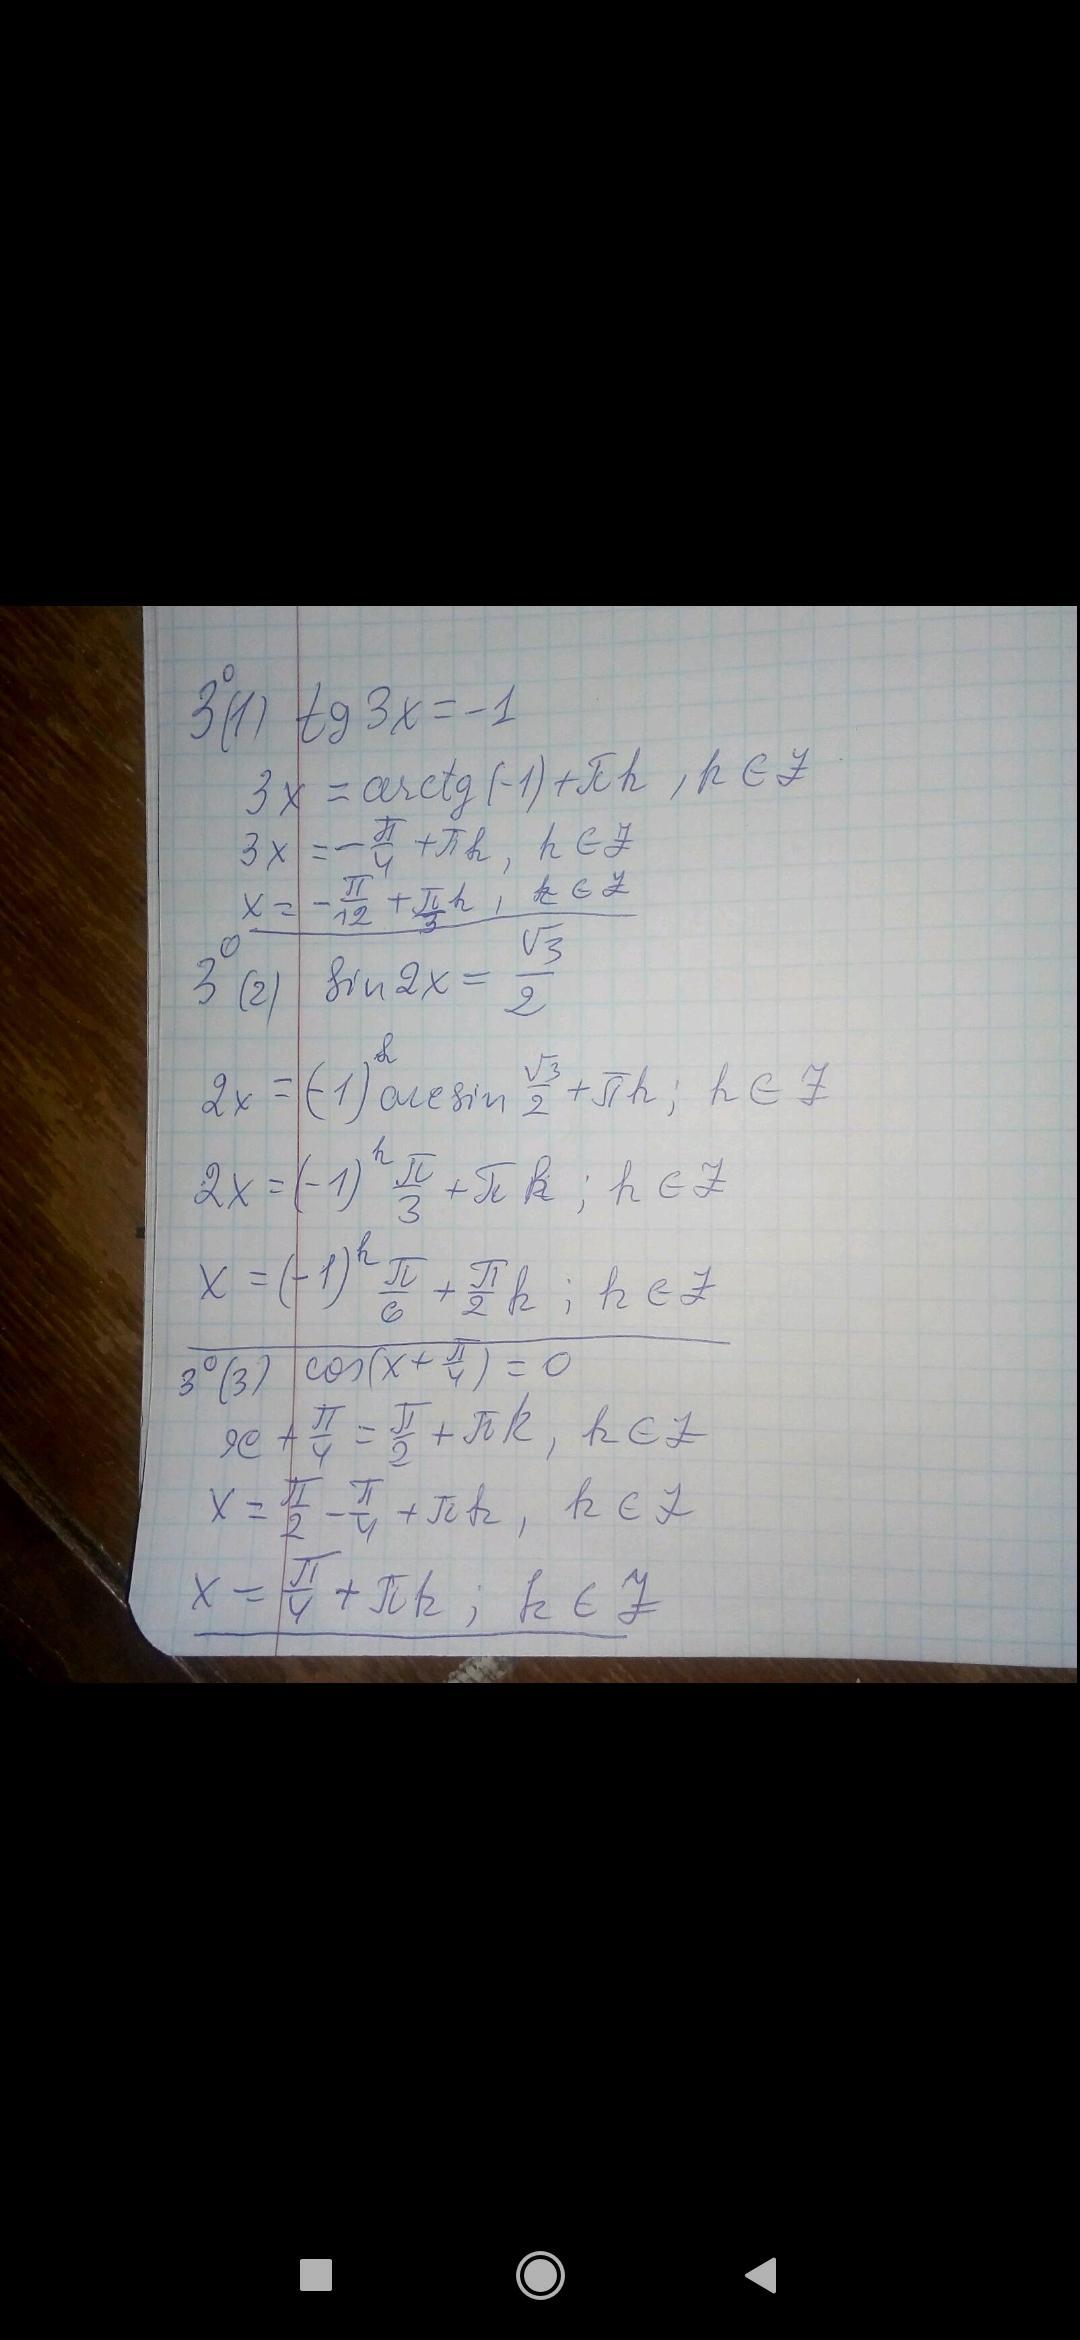 3⁰(1) tg 3x = -1
3x = arctg(-1) + πk, k ∈ Z
3x = -π/4 + πk, k ∈ Z
x = -π/12 + π/3 k, k ∈ Z
3⁰(2) sin 2x = √3/2
2x = (-1)^k arcsin √3/2 + πk; k ∈ Z
2x = (-1)^k π/3 + πk; k ∈ Z
x = (-1)^k π/6 + π/2 k; k ∈ Z
3⁰(3) cos(x + π/4) = 0
x + π/4 = π/2 + πk, k ∈ Z
x = π/2 - π/4 + πk, k ∈ Z
x = π/4 + πk; k ∈ Z